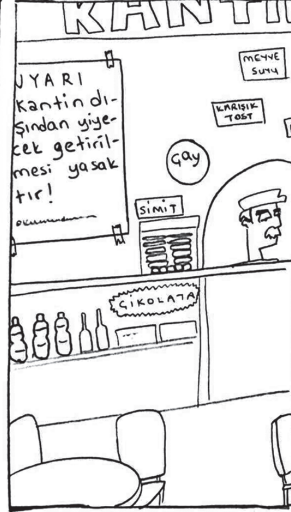 KANTİN
UYARI
Kantin dı-
şından yiye-
cek getiril-
mesi yasak
tır!
MEYVE
SUYU
KARIŞIK
TOST
Çay
SİMİT
ÇİKOLATA